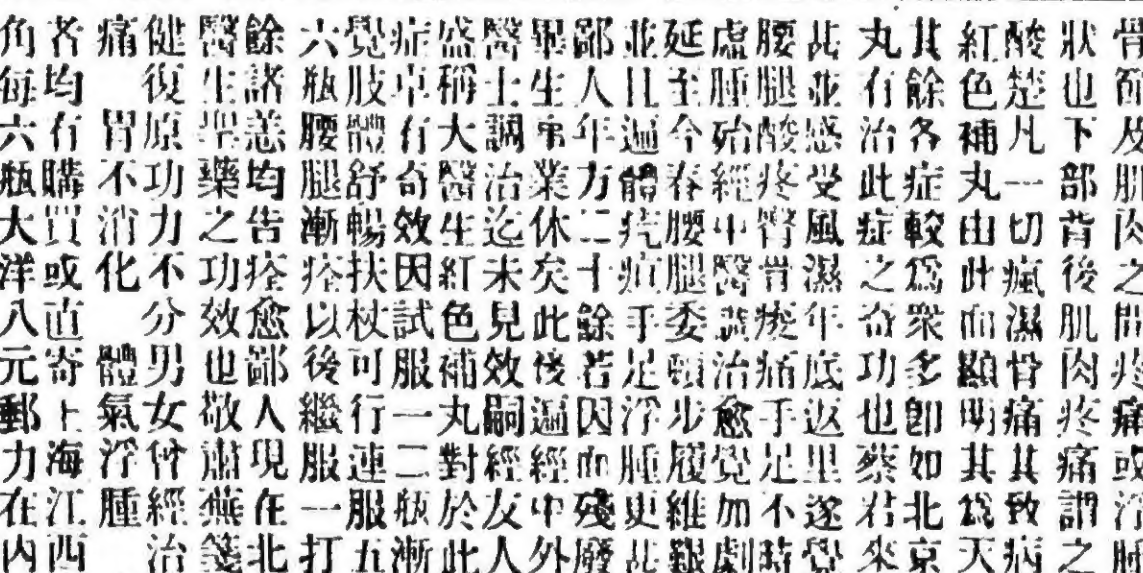 骨節及肌肉之間疼痛或浮腫
狀也下部背後肌肉疼痛謂之
酸楚凡一切瘋濕骨痛其致病
紅色補丸由此而顯明其為天
其餘各症較為衆多即如北京
丸有治此症之奇功也蔡君來
甚並感受風濕年底返里遂覺
腰腿酸疼臂骨痠痛手足不時
虛腫殆經中醫治愈覺加劇
延至今春腰腿委頓步履維艱
並且遍體疣疽手足浮腫更甚
鄙人年方二十餘若因而殘廢
畢生事業休矣此後遍經中外
醫士調治迄未見效嗣經友人
盛稱大醫生紅色補丸對於此
症卓有奇效因試服一二瓶漸
覺肢體舒暢扶杖可行連服五
六瓶腰腿漸痊以後繼服一打
餘諸恙均告痊愈鄙人現在北
醫生聖藥之功效也敬肅蕪箋
健復原功力不分男女曾經治
痛 胃不消化 體氣浮腫
各均有購買或直寄上海江西
角每六瓶大洋八元郵力在內